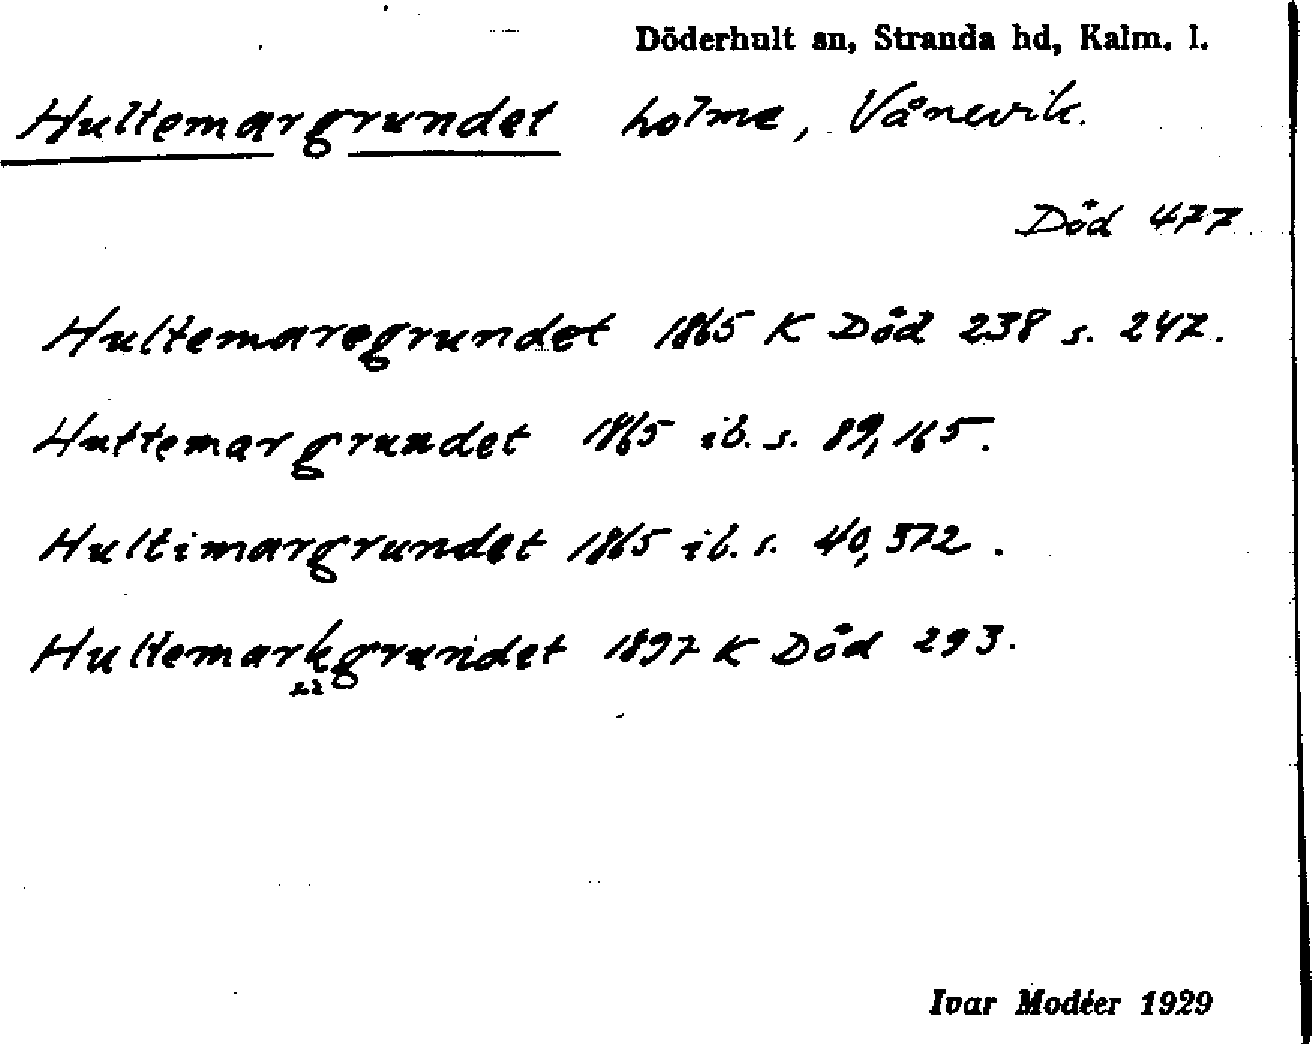 Döderhult sn, Stranda hd, Kalm. l.
Hultemargrundet holme, Vånevik.
Död 477
Hultemaregrundet 1865 K Död 238 s. 247.
Hultemargrundet 1865 ib. s. 89, 165.
Hultimargrundet 1865 ib. s. 40, 372.
Hultemarkgrundet 1897 K Död 293.
Ivar Modéer 1929